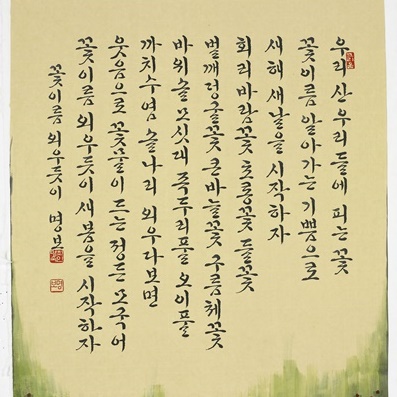 우리 산 우리 들에 피는 꽃
꽃이름 알아가는 기쁨으로
새해 새날을 시작하자
회리바람꽃 초롱꽃 들꽃
벌깨덩굴꽃 큰바늘꽃 구름체꽃
바위솔 모싯대 족두리풀 오이풀
까치수염 솔나리 외우다보면
웃음으로 꽃물이 드는 정든 모국어
꽃이름 외우듯이 새봄을 시작하자
꽃이름 외우듯이